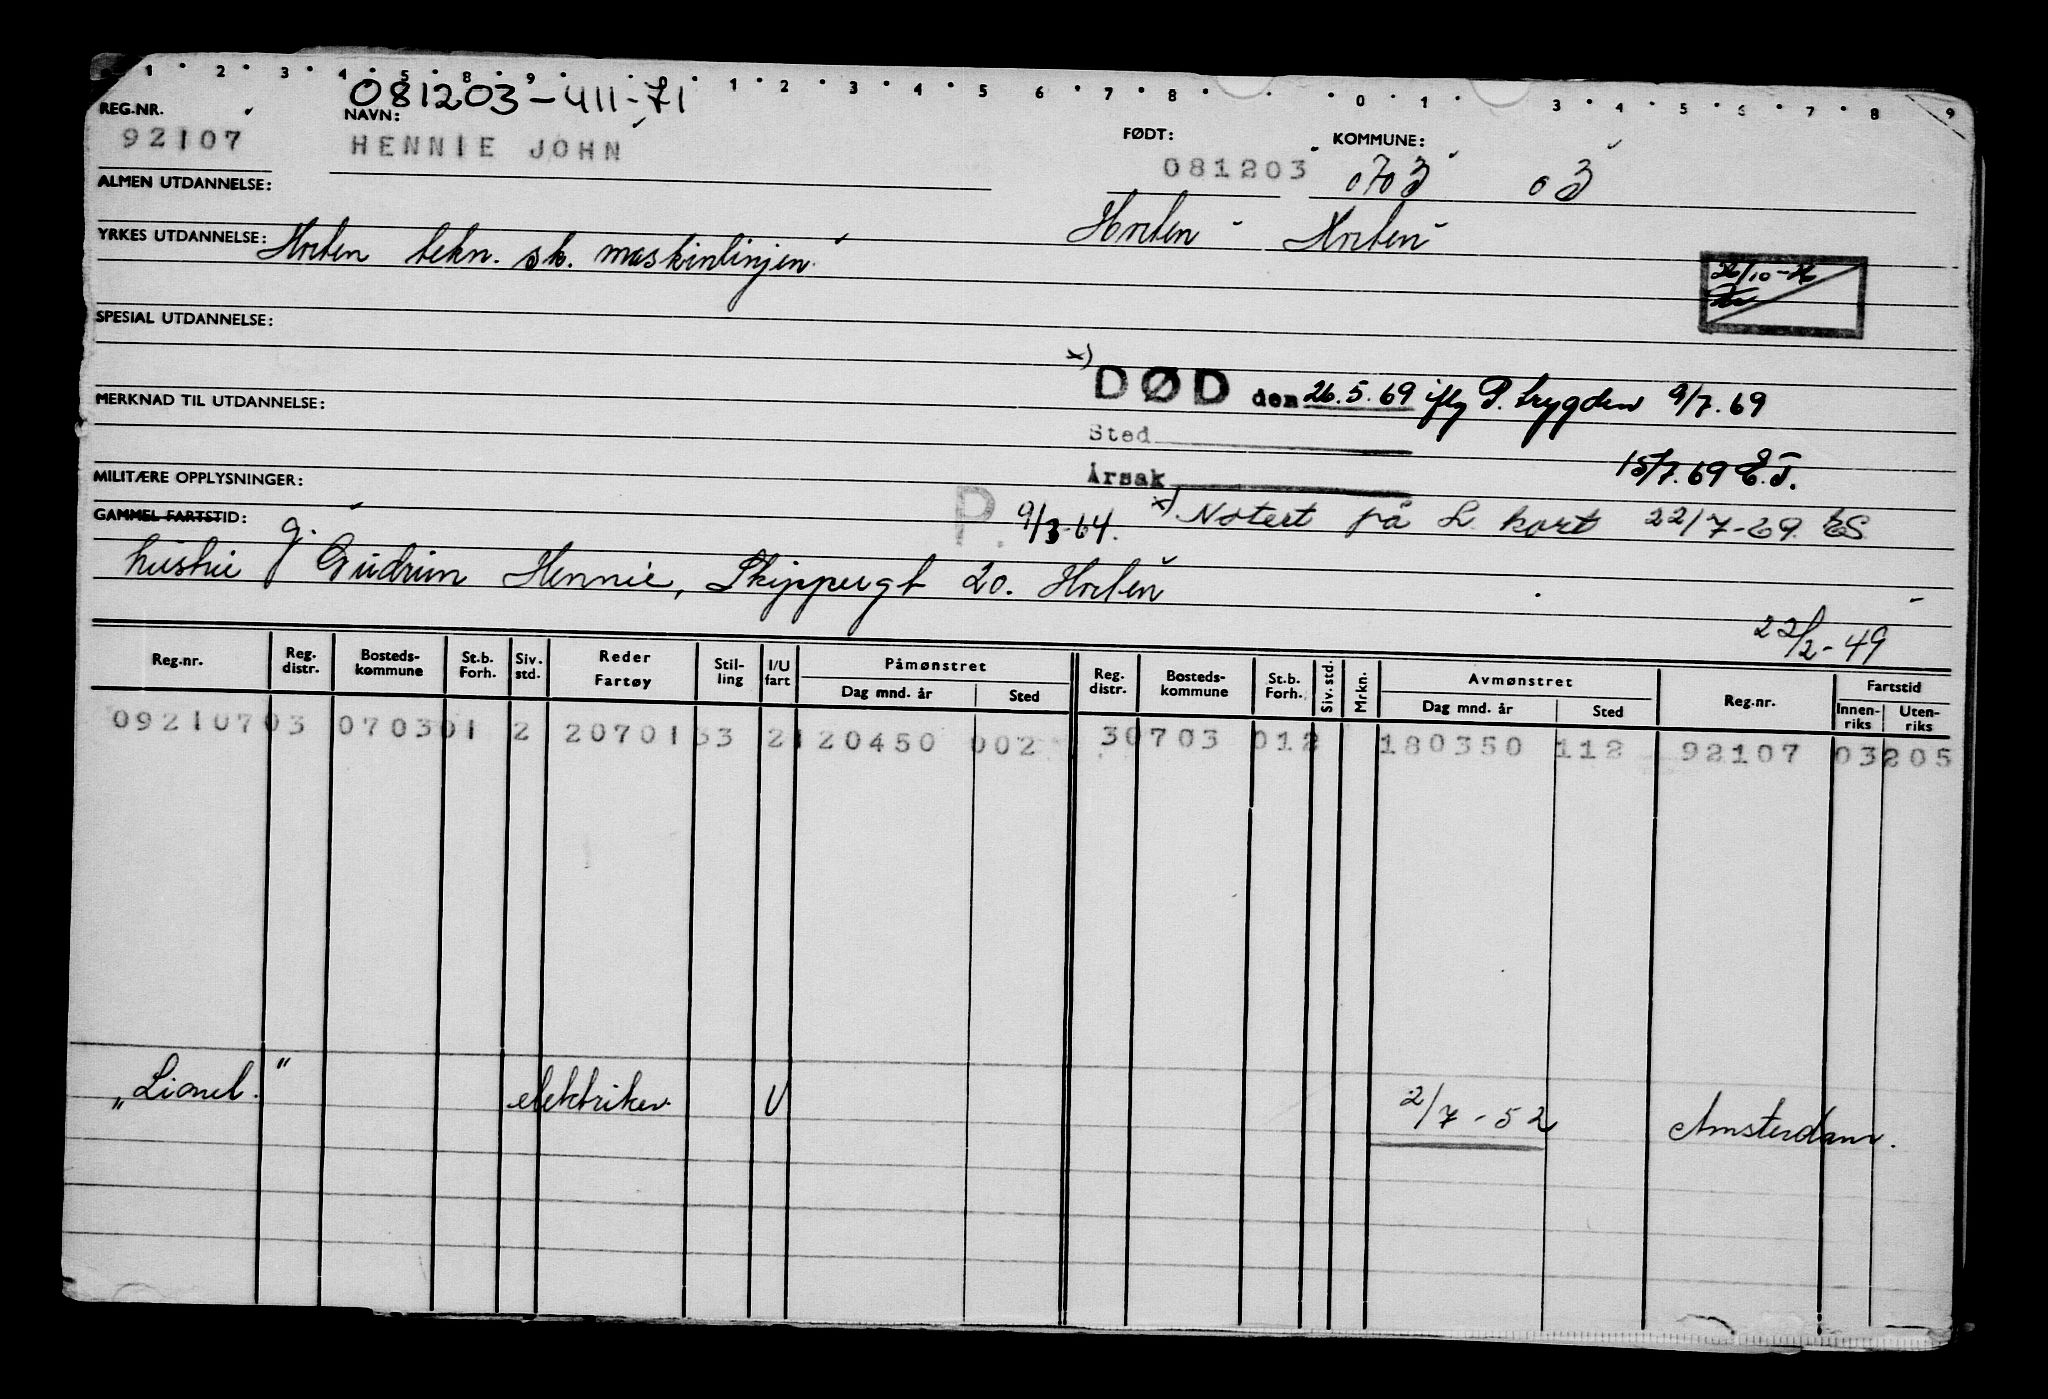 1 2 3 4 5 8 9 1 2 3 4 5 6 7 8 0 1 3 4 5 6 7 8 9
081203-411-71
REG.NR. NAVN: FØDT: KOMMUNE:
92107 HENNIE JOHN 081203 0703 03
ALMEN UTDANNELSE:
Horten - Horten
YRKES UTDANNELSE: Horten tekn. sk. maskinlinjen
26/10-
SPESIAL UTDANNELSE:
x) DØD den 26.5.69 iflg P. trygden 9/7.69
MERKNAD TIL UTDANNELSE:
Sted
15/7.69 E.T.
MILITÆRE OPPLYSNINGER: Årsak
GAMMEL FARTSTID: P. 9/3-64. x) Notert på L kort 22/7-69. ES
hustru g. Gudrun Hennie, Skippergt 20. Horten
22/2-49
Reg.nr. Reg. distr. Bosteds-kommune St.b. Forh. Siv. std. Reder Fartøy Stil-ling I/U fart Påmønstret Dag mnd. år Sted Reg. distr. Bosteds-kommune St.b. Forh. Siv. std. Mrkn. Avmønstret Dag mnd. år Sted Reg.nr. Fartstid Innen-riks Uten-riks
09210703 070301 2 2070133 2120450 002 30703 012 180350 112 92107 03205
"Lionel." elektriker U 2/7-52 Amsterdam.